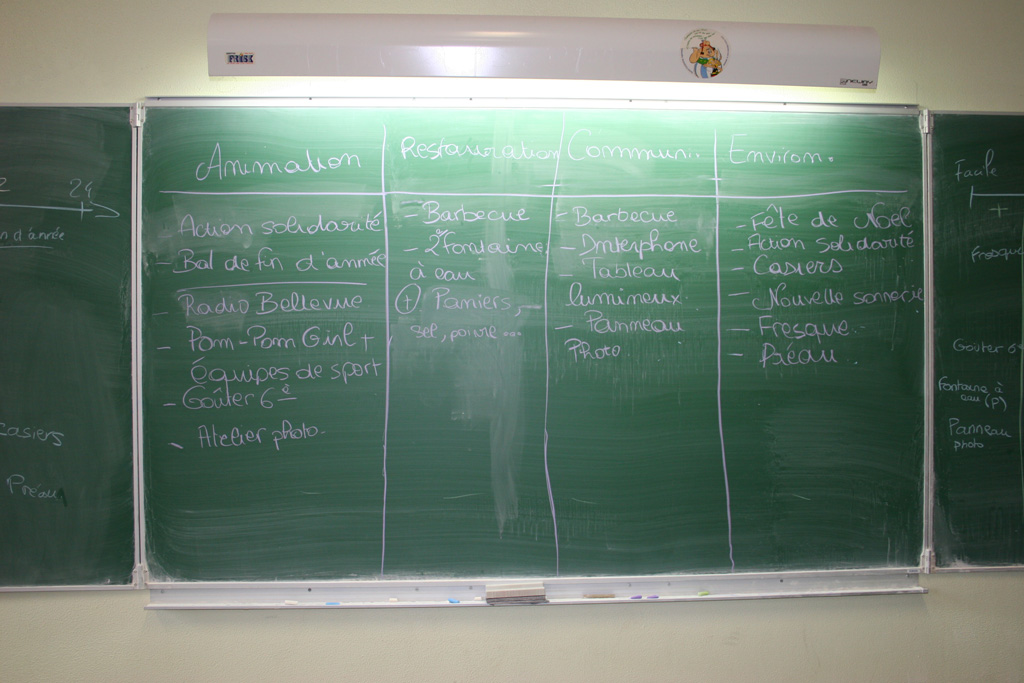 FRISK
UNICLIPV
Animation
Restauration
Communi.
Environ.
Action solidarité
- Bal de fin d'année
- Radio Bellevue
- Pom-Pom Girl +
équipes de sport
- Goûter 6è
- Atelier photo.
- Barbecue
- 2è Fontaine
à eau
+ Paniers,
sel, poivre ...
- Barbecue
- Interphone
- Tableau
lumineux.
- Panneau
Photo
- Fête de Noël
- Action solidarité
- Casiers
- Nouvelle sonnerie
- Fresque.
- Préau.
2
24
n d'année
Casiers
Préau
Facile
+
Fresque
Goûter 6è
Fontaine à
eau (P)
Panneau
photo